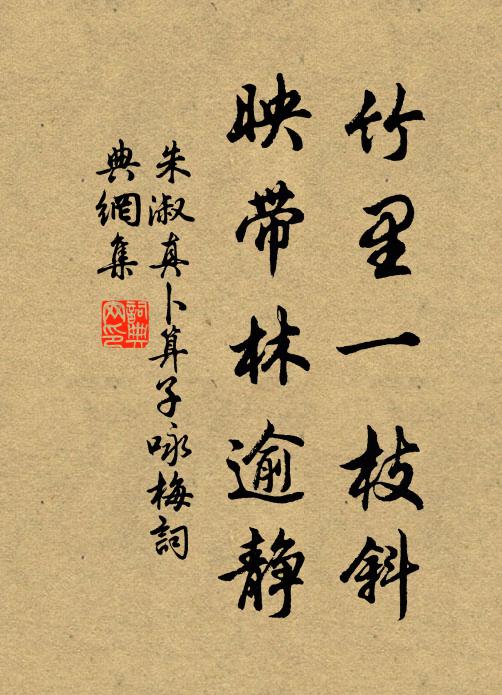 竹里一枝斜
映带林逾静
朱淑真卜算子咏梅词
典網集
詞典網印